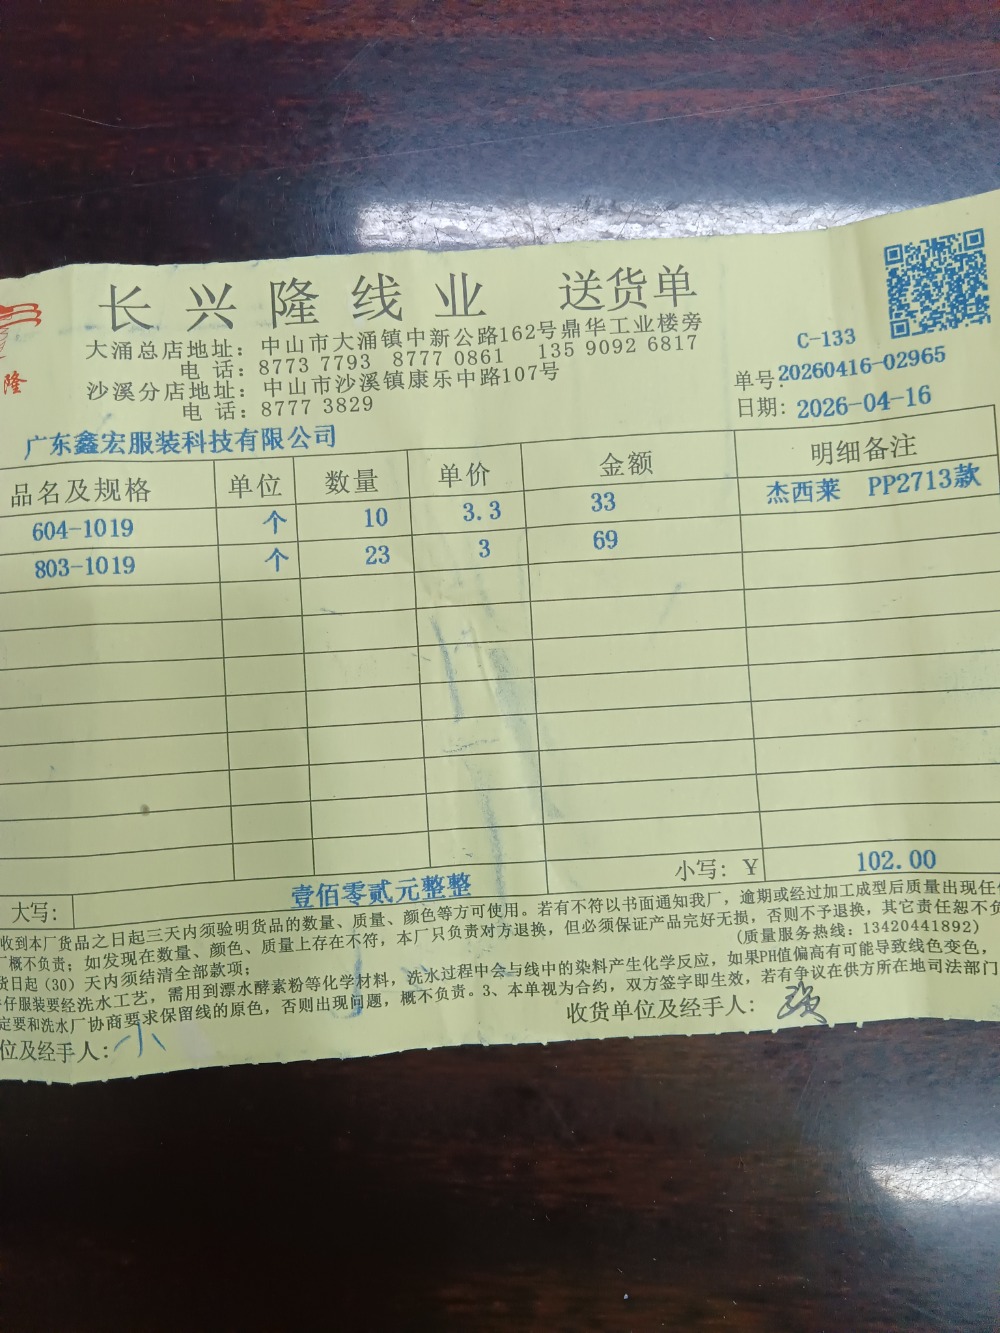 长兴隆线业 送货单
隆
大涌总店地址：中山市大涌镇中新公路162号鼎华工业楼旁
电 话：8773 7793 8777 0861 135 9092 6817
沙溪分店地址：中山市沙溪镇康乐中路107号
电 话：8777 3829
C-133
单号：20260416-02965
日期：2026-04-16
广东鑫宏服装科技有限公司
品名及规格 单位 数量 单价 金额 明细备注
604-1019 个 10 3.3 33 杰西莱 PP2713款
803-1019 个 23 3 69
小写：￥ 102.00
大写： 壹佰零贰元整整
收到本厂货品之日起三天内须验明货品的数量、质量、颜色等方可使用。若有不符以书面通知我厂，逾期或经过加工成型后质量出现任
厂概不负责；如发现在数量、颜色、质量上存在不符，本厂只负责对方退换，但必须保证产品完好无损，否则不予退换，其它责任恕不负
货日起（30）天内须结清全部款项； (质量服务热线：13420441892)
仔服装要经洗水工艺，需用到漂水酵素粉等化学材料，洗水过程中会与线中的染料产生化学反应，如果PH值偏高有可能导致线色变色，
定要和洗水厂协商要求保留线的原色，否则出现问题，概不负责。3、本单视为合约，双方签字即生效，若有争议在供方所在地司法部门
位及经手人：小 收货单位及经手人：